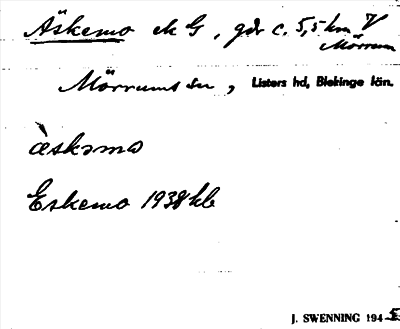 Äskemo ek G, gdr c. 5,5 km V
Mörrum
Mörrums sn, Listers hd, Blekinge län.
àskəmo
Eskemo 1938 kb
J. SWENNING 1945